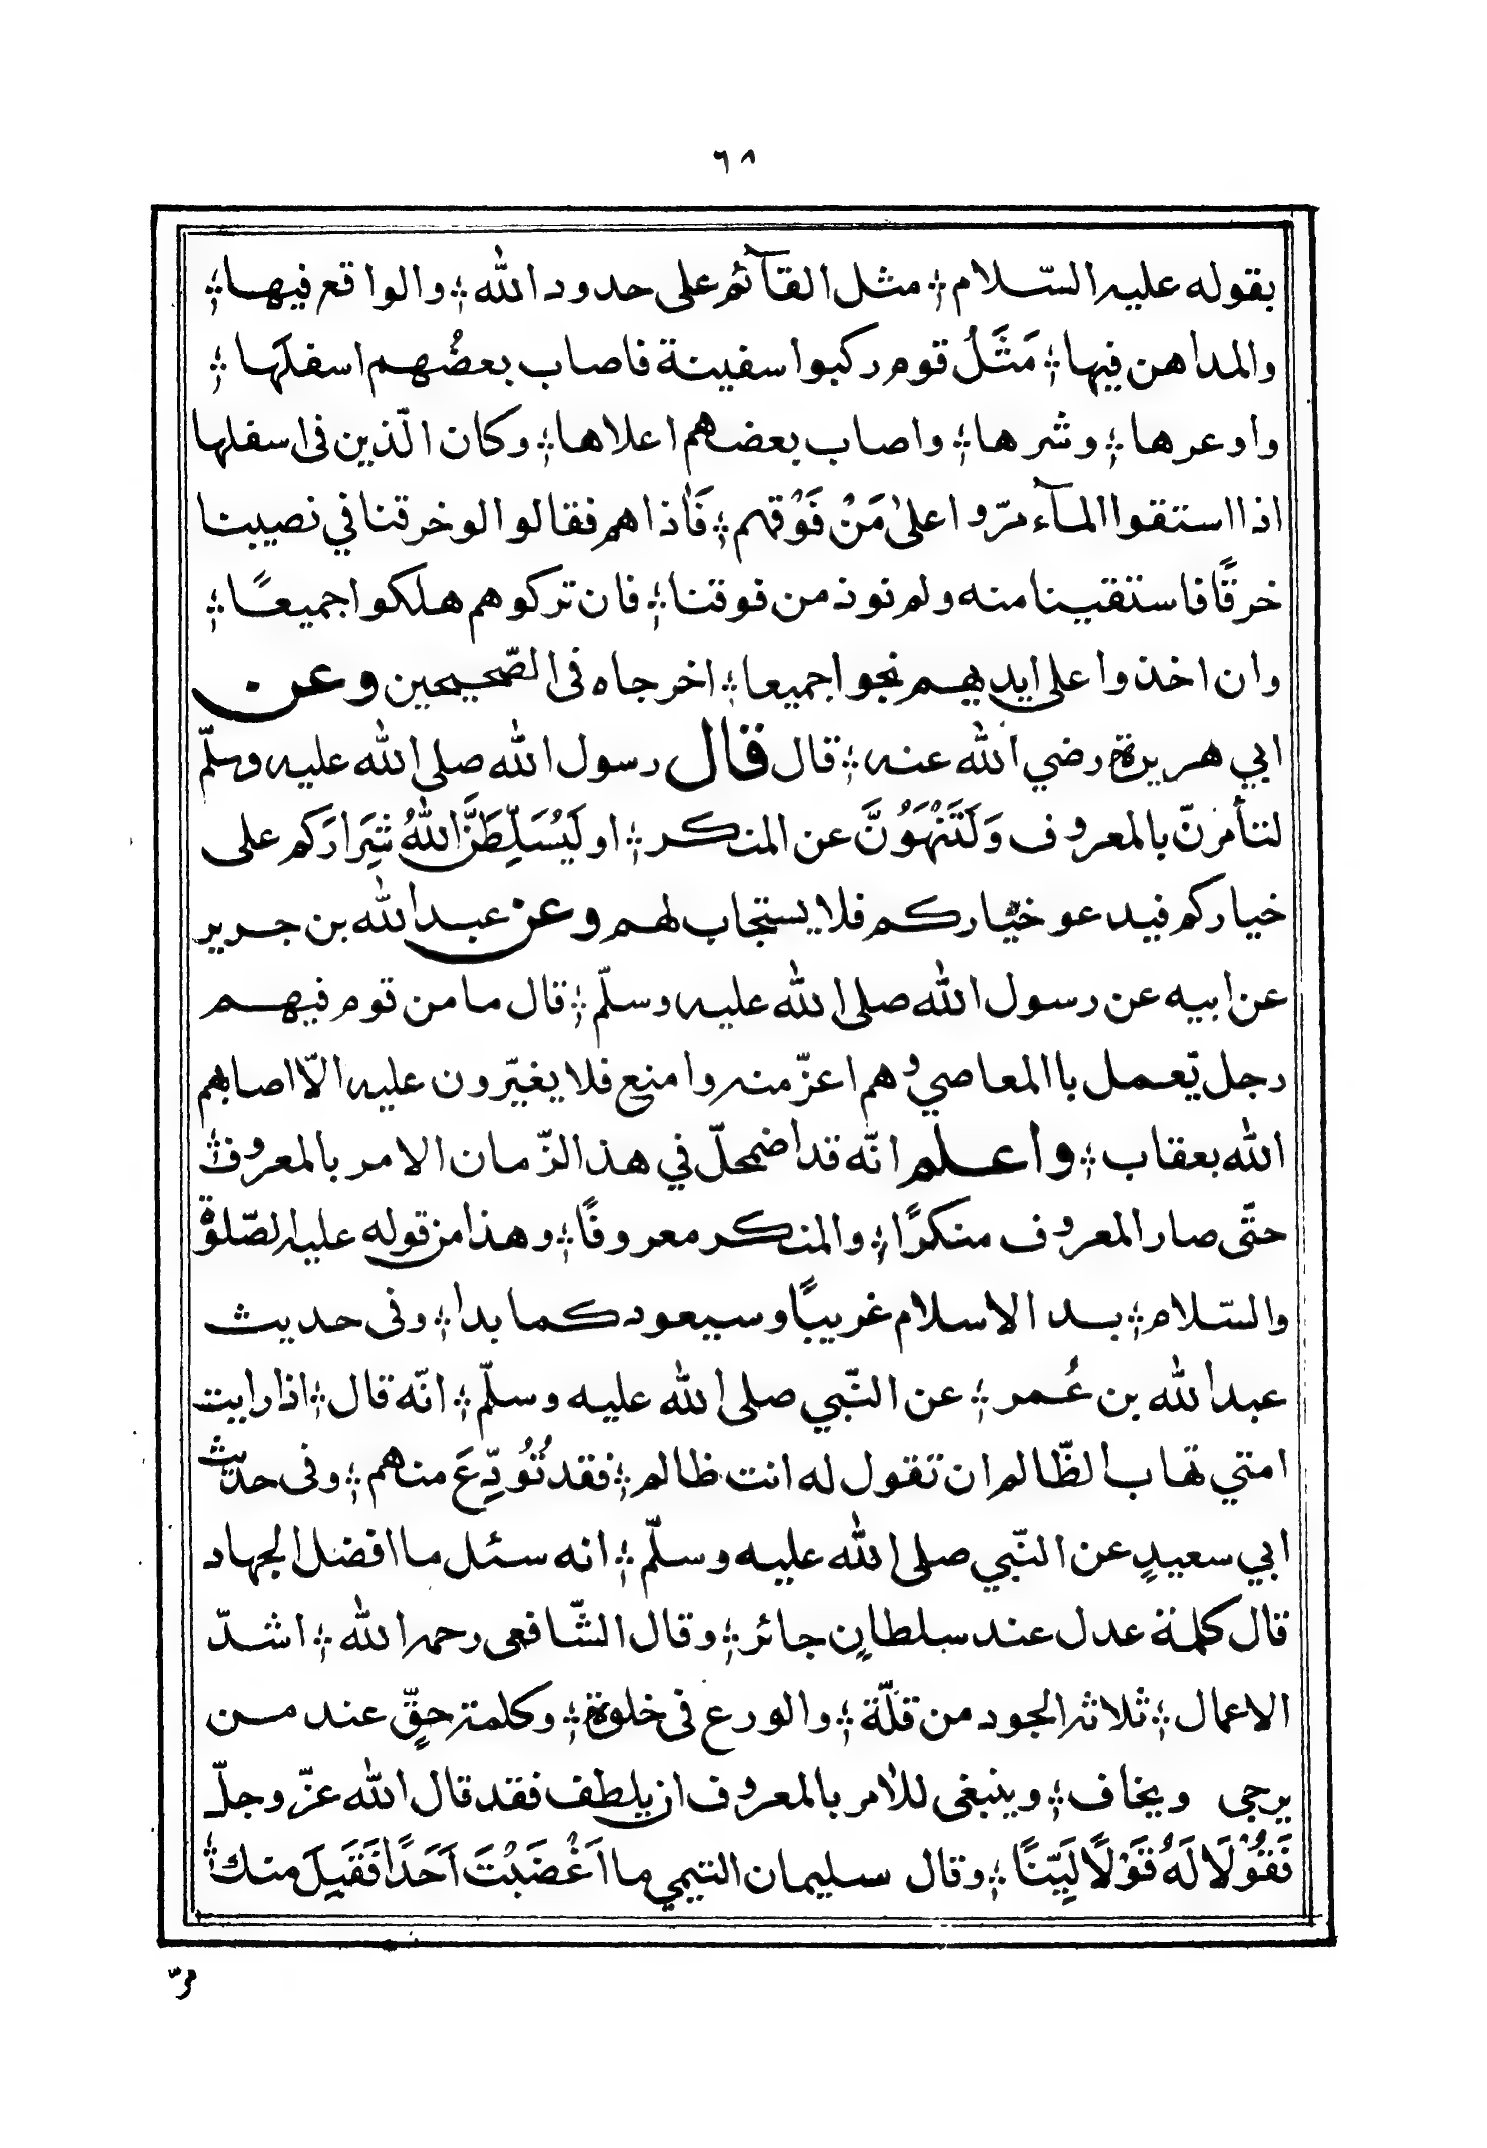 ٦٨
بقوله عليه السّلام ؛ مثل القآئم على حدود الله ؛ والواقع فيها ؛
والمداهن فيها ؛ مَثَلُ قوم ركبوا سفينة فاصاب بعضُهم اسفلَها ؛
واوعرها ؛ وشرها ؛ واصاب بعضهم اعلاها ؛ وكان الّذين فى اسفلها
اذا استقوا المآء مرّوا على مَنْ فَوْقهم ؛ فَاذاهم فقالوا لو خرقنا في نصيبنا
خرقًا فاستقينا منه ولم نوذ من فوقنا ؛ فان تركوهم هلكوا جميعًا ؛
وان اخذوا على ايديهم نجوا جميعا ؛ اخرجاه فى الصّحيحين وعن
ابي هريرة رضي الله عنه ؛ قال قال رسول الله صلى الله عليه وسلّم
لتأمرنّ بالمعروف وَلَتَنْهَوُنَّ عن المنكر ؛ او لَيُسَلِّطَنَّ اللهُ شِرَارَكم على
خياركم فيدعو خياركم فلا يستجاب لهم وعن عبد الله بن جرير
عن ابيه عن رسول الله صلى الله عليه وسلّم ؛ قال ما من قوم فيهم
رجل يّعمل باالمعاصي وهم اعزّ منه وامنع فلا يغيّرون عليه الّا اصابهم
الله بعقاب ؛ واعلم انّه قد اضمحلّ في هذ الزّمان الامر بالمعروف ؛
حتّى صار المعروف منكرًا ؛ والمنكر معروفًا ؛ وهذا من قوله عليه الصّلوة
والسّلام ؛ بد الاسلام غريبًا وسيعود كما بدا ؛ وفى حديث
عبد الله بن عُمر ؛ عن النّبي صلى الله عليه وسلّم ؛ انّه قال ؛ اذا رايت
امتي تهاب الظّالم ان تقول له انت ظالم ؛ فقد تُوُدِّعَ منهم ؛ وفى حديث
ابي سعيدٍ عن النّبي صلى الله عليه وسلّم ؛ انه سئل ما افضل الجهاد
قال كلمة عدل عند سلطانٍ جائر ؛ وقال الشّافعى رحمه الله ؛ اشدّ
الاعمال ؛ ثلاثة الجود من قلّة ؛ والورع فى خلوة ؛ وكلمة حقٍّ عند من
يرجى ويخاف ؛ وينبغى للامر بالمعروف ان يلطف فقد قال الله عزّ وجلّ
فَقُوْلَا لَهُ قَوْلًا لَيِّنًا ؛ وقال سليمان التيمي ما اَغْضَبْتَ اَحَدًا فَقَبِلَ منك ؛